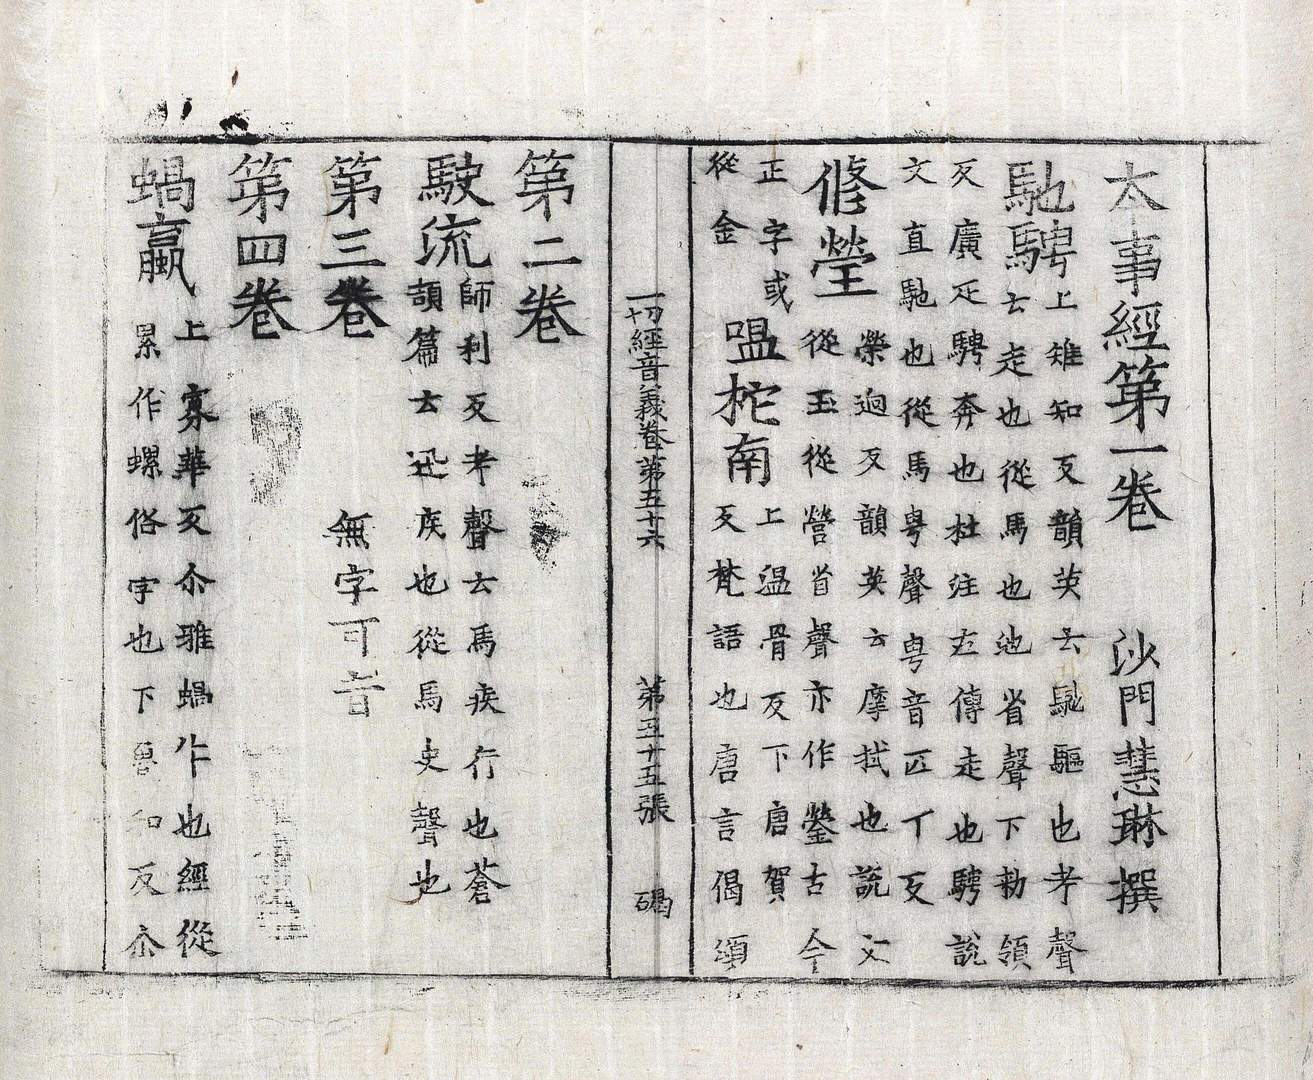 本事經第一卷　沙門慧琳撰
馳騁上雉知反韻英云馳驅也考聲
云走也從馬也池省聲下勑領
反廣疋騁奔也杜注左傳走也騁說
文直馳也從馬甹聲甹音匹丁反
修瑩榮迥反韻英云摩拭也說文
從玉從營省聲亦作鎣古今
正字或
從金
嗢柁南上溫骨反下唐賀
反梵語也唐言偈頌
一切經音義卷第五十六　第五十五張　碣
第二卷
駛流師利反考聲云馬疾行也蒼
頡篇云迅疾也從馬史聲也
第三卷　無字可音
第四卷
蝸蠃上寡華反尒雅蝸牛也經從
累作螺俗字也下魯和反尒